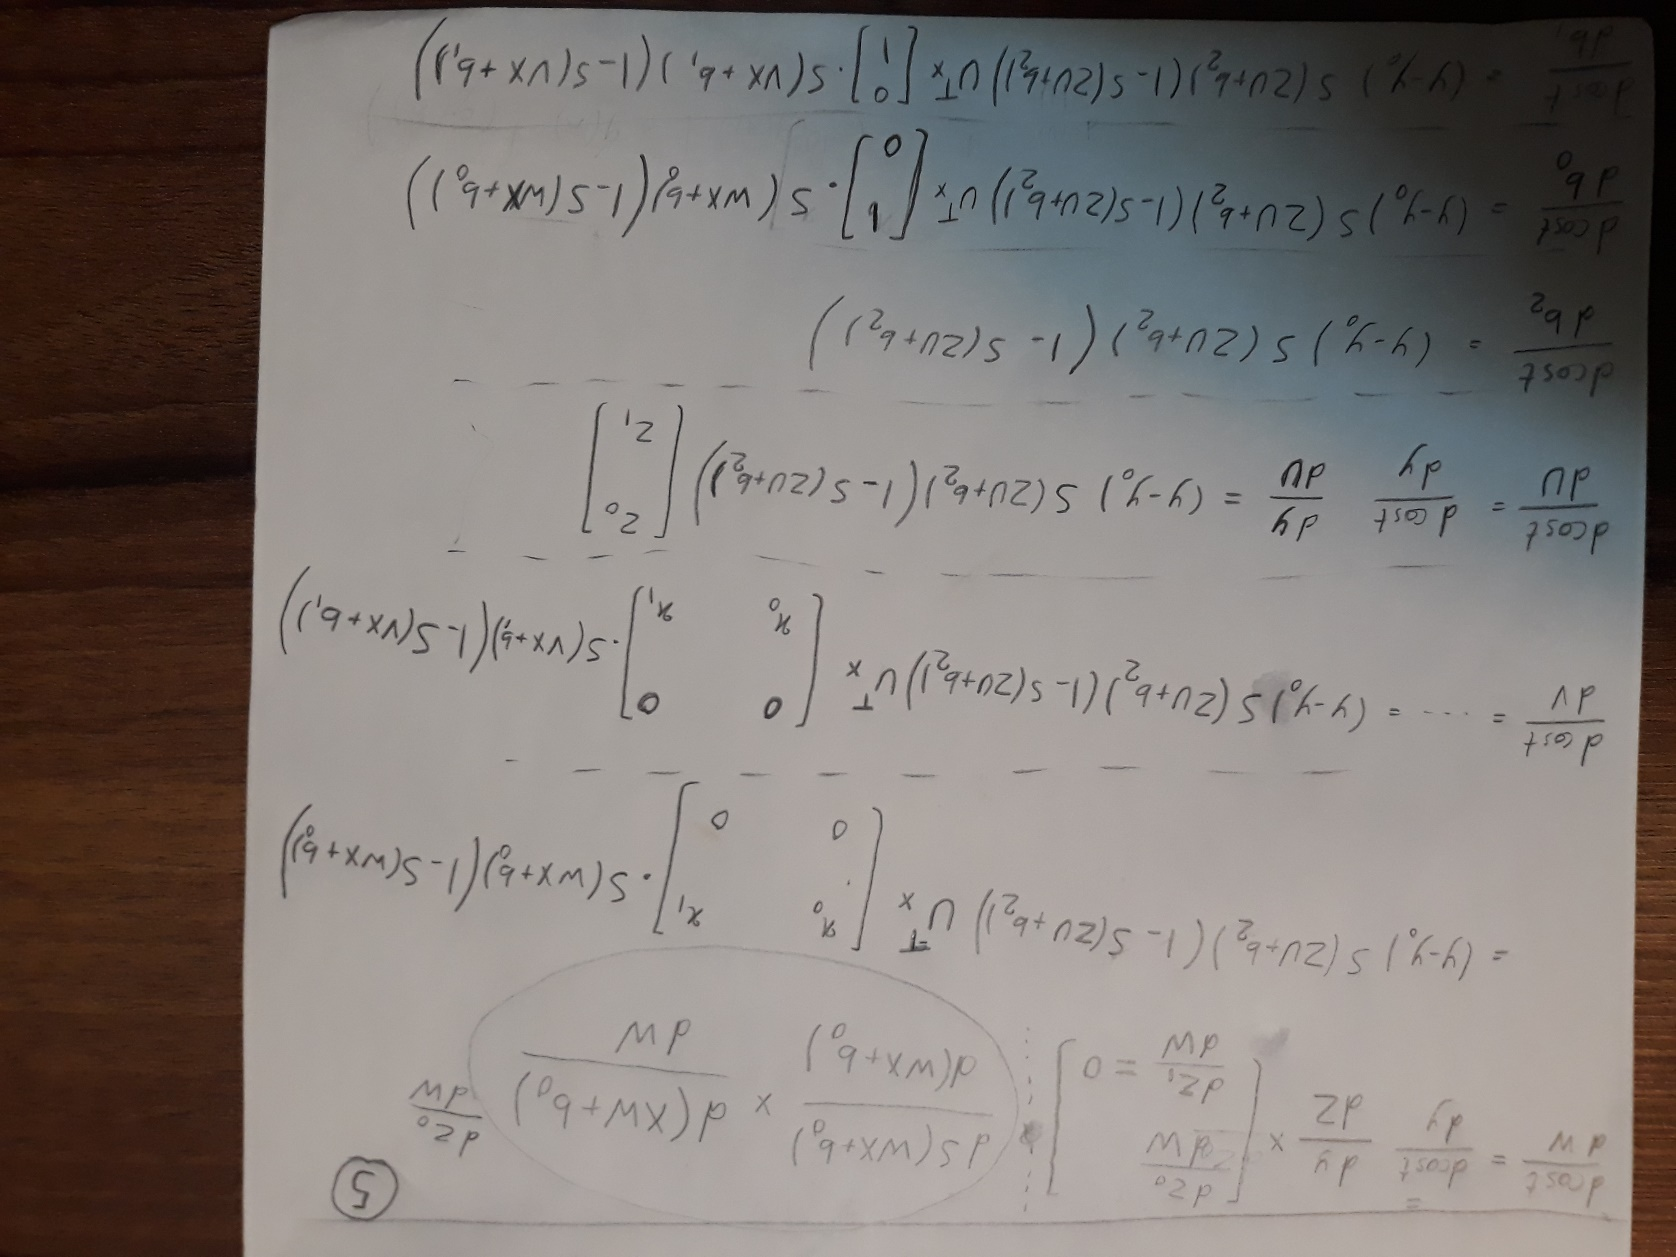 5
dcost/dW = dcost/dy dy/dZ × [dZ₀/dW dZ₁/dW = 0] × dS(WX+b₀)/d(WX+b₀) × d(XW+b₀)/dW dZ₀/dW
= (y-y₀) S(ZU+b₂)(1-S(ZU+b₂)) Uᵀ × [x₀ x₁ 0 0] · S(WX+b₀)(1-S(WX+b₀))
dcost/dV = ---- = (y-y₀) S(ZU+b₂)(1-S(ZU+b₂)) Uᵀ × [0 0 x₀ x₁] · S(VX+b₁)(1-S(VX+b₁))
dcost/dU = dcost/dy dy/dU = (y-y₀) S(ZU+b₂)(1-S(ZU+b₂)) [Z₀ Z₁]
dcost/db₂ = (y-y₀) S(ZU+b₂)(1-S(ZU+b₂))
dcost/db₀ = (y-y₀) S(ZU+b₂)(1-S(ZU+b₂)) Uᵀ × [1 0] · S(WX+b₀)(1-S(WX+b₀))
dcost/db₁ = (y-y₀) S(ZU+b₂)(1-S(ZU+b₂)) Uᵀ × [0 1] · S(VX+b₁)(1-S(VX+b₁))